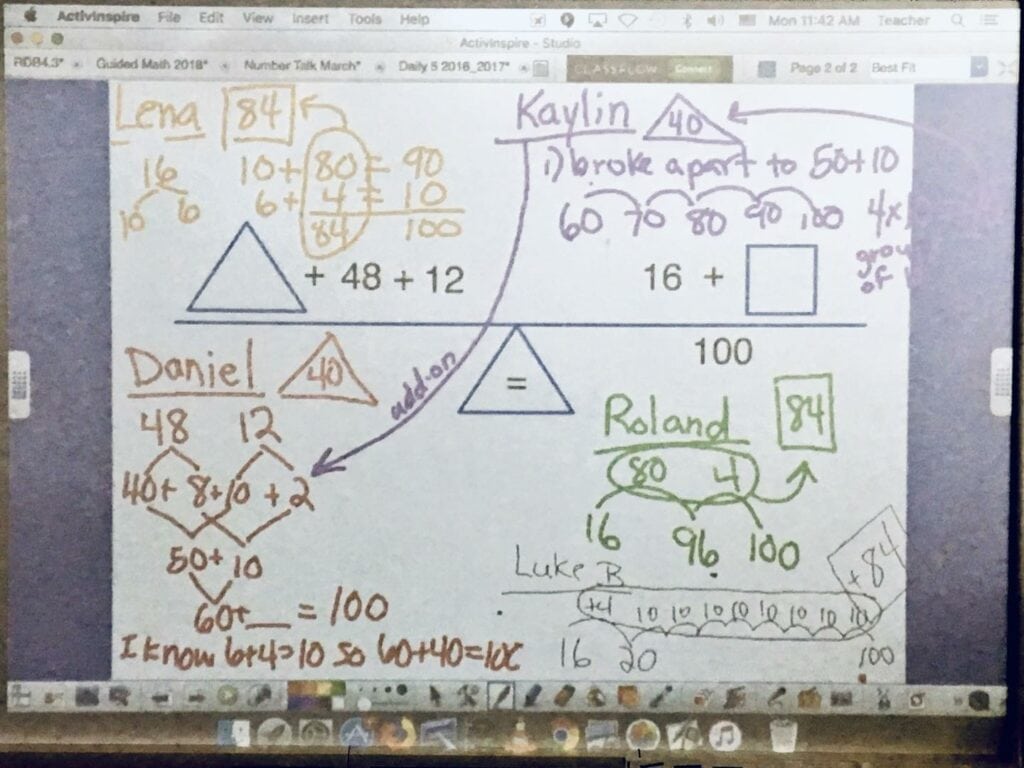 ActivInspire File Edit View Insert Tools Help Mon 11:42 AM Teacher
ActivInspire - Studio
RDB4.3* Guided Math 2018* Number Talk March* Daily 5 2016_2017* CLASSFLOW Connect Page 2 of 2 Best Fit
Lena 84
16
10 6
10 + 80 = 90
6 + 4 = 10
84 100
Kaylin 40
1) broke apart to 50+10
60 70 80 90 100
of
+ 48 + 12
16 +
=
100
add-on
Daniel 40
48 12
40 + 8 + 10 + 2
50 + 10
60 + __ = 100
I know 6+4=10 so 60+40=100
Roland 84
80 4
16 96 100
Luke B
+84
+4 10 10 10 10 10 10 10 10
16 20 100